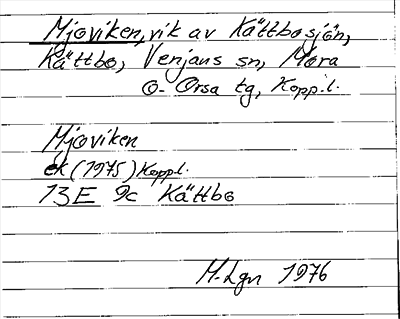 Mjoviken, vik av Kättbosjön,
Kättbo, Venjans sn, Mora
o. Orsa tg, Kopp.l.
Mjoviken
ek (1975) Kopp.l.
13E 9c Kättbo
M-Lgn 1976